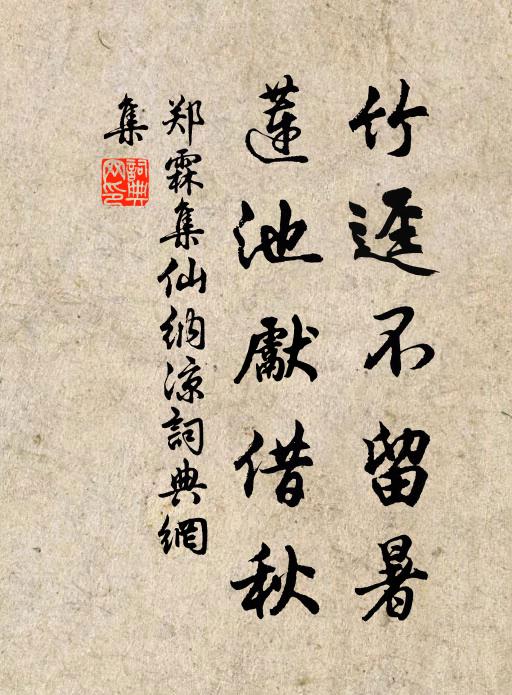 竹迳不留暑
蓮池獻借秋
郑霖集仙纳凉詞典網
集
詞典網印